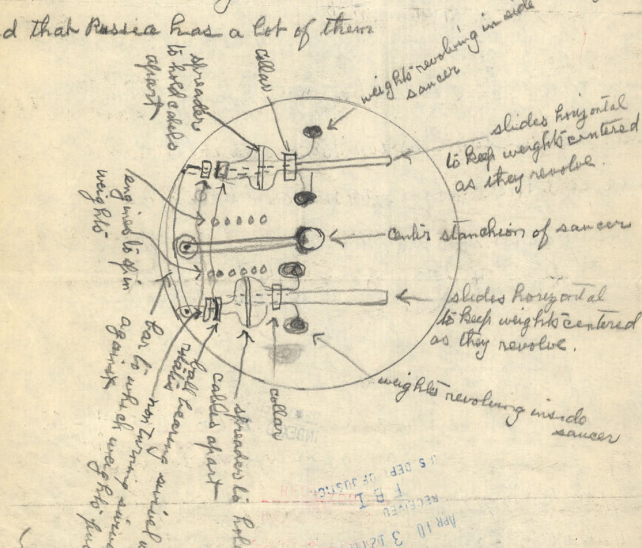 d that Russia has a lot of them
weights revolving in side
saucer
collar
spreader
to hold cables
apart
slides horizontal
to keep weights centered
as they revolve.
engines to spin
weights
center stanchion of saucer
slides horizontal
to keep weights centered
as they revolve.
weights revolving inside
saucer
collar
spreader to hold
cables apart
ball bearing
non turning swivel
bar to which turning
against
weights
INDEX
U.S. DEPT. OF JUSTICE
F B I
RECEIVED
APR 10 3